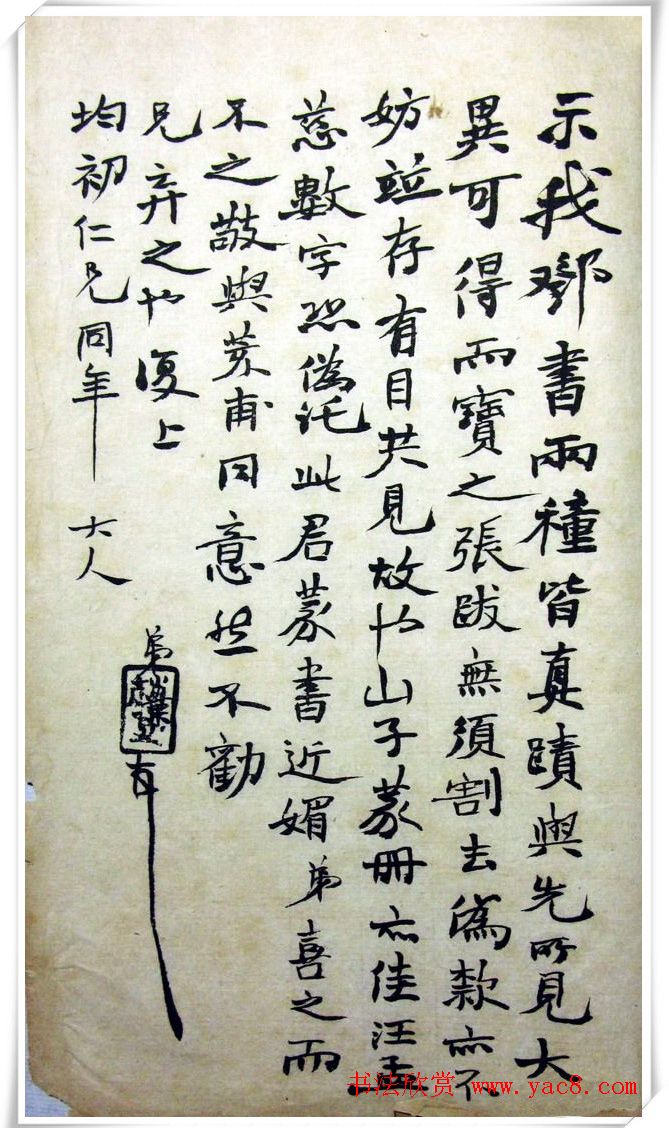 示我鄧書兩種皆真蹟與先所見大
異可得而寶之張跋無須割去偽款亦不
妨並存有目共見故也山子篆冊亦佳汪孟
慈數字恐偽託此君篆書近媚弟喜之而
不之敬與荄甫同意然不勸
兄弃之也復上
均初仁兄同年大人
弟
书法欣赏 www.yac8.com